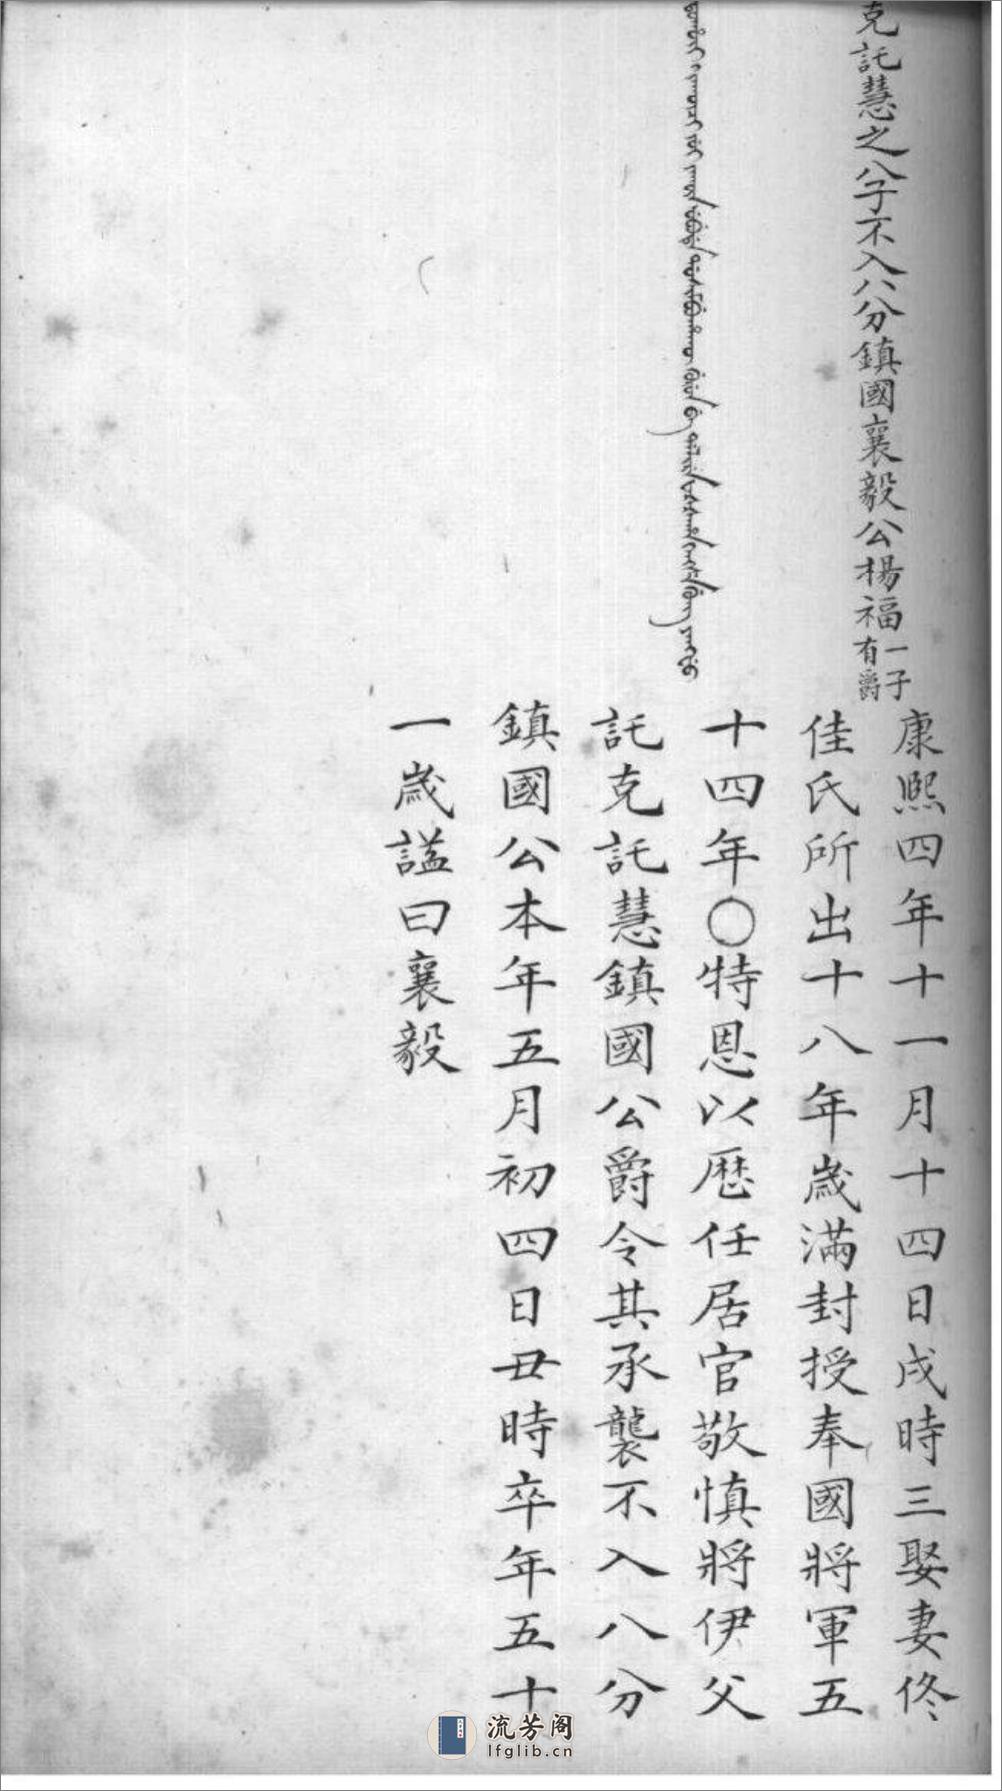 克託慧之八子不入八分鎮國襄毅公楊福一子有爵
康熙四年十一月十四日戌時三娶妻佟
佳氏所出十八年歲滿封授奉國將軍五
十四年〇特恩以歷任居官敬慎將伊父
託克託慧鎮國公爵令其承襲不入八分
鎮國公本年五月初四日丑時卒年五十
一歲諡曰襄毅
流芳阁
lfglib.cn